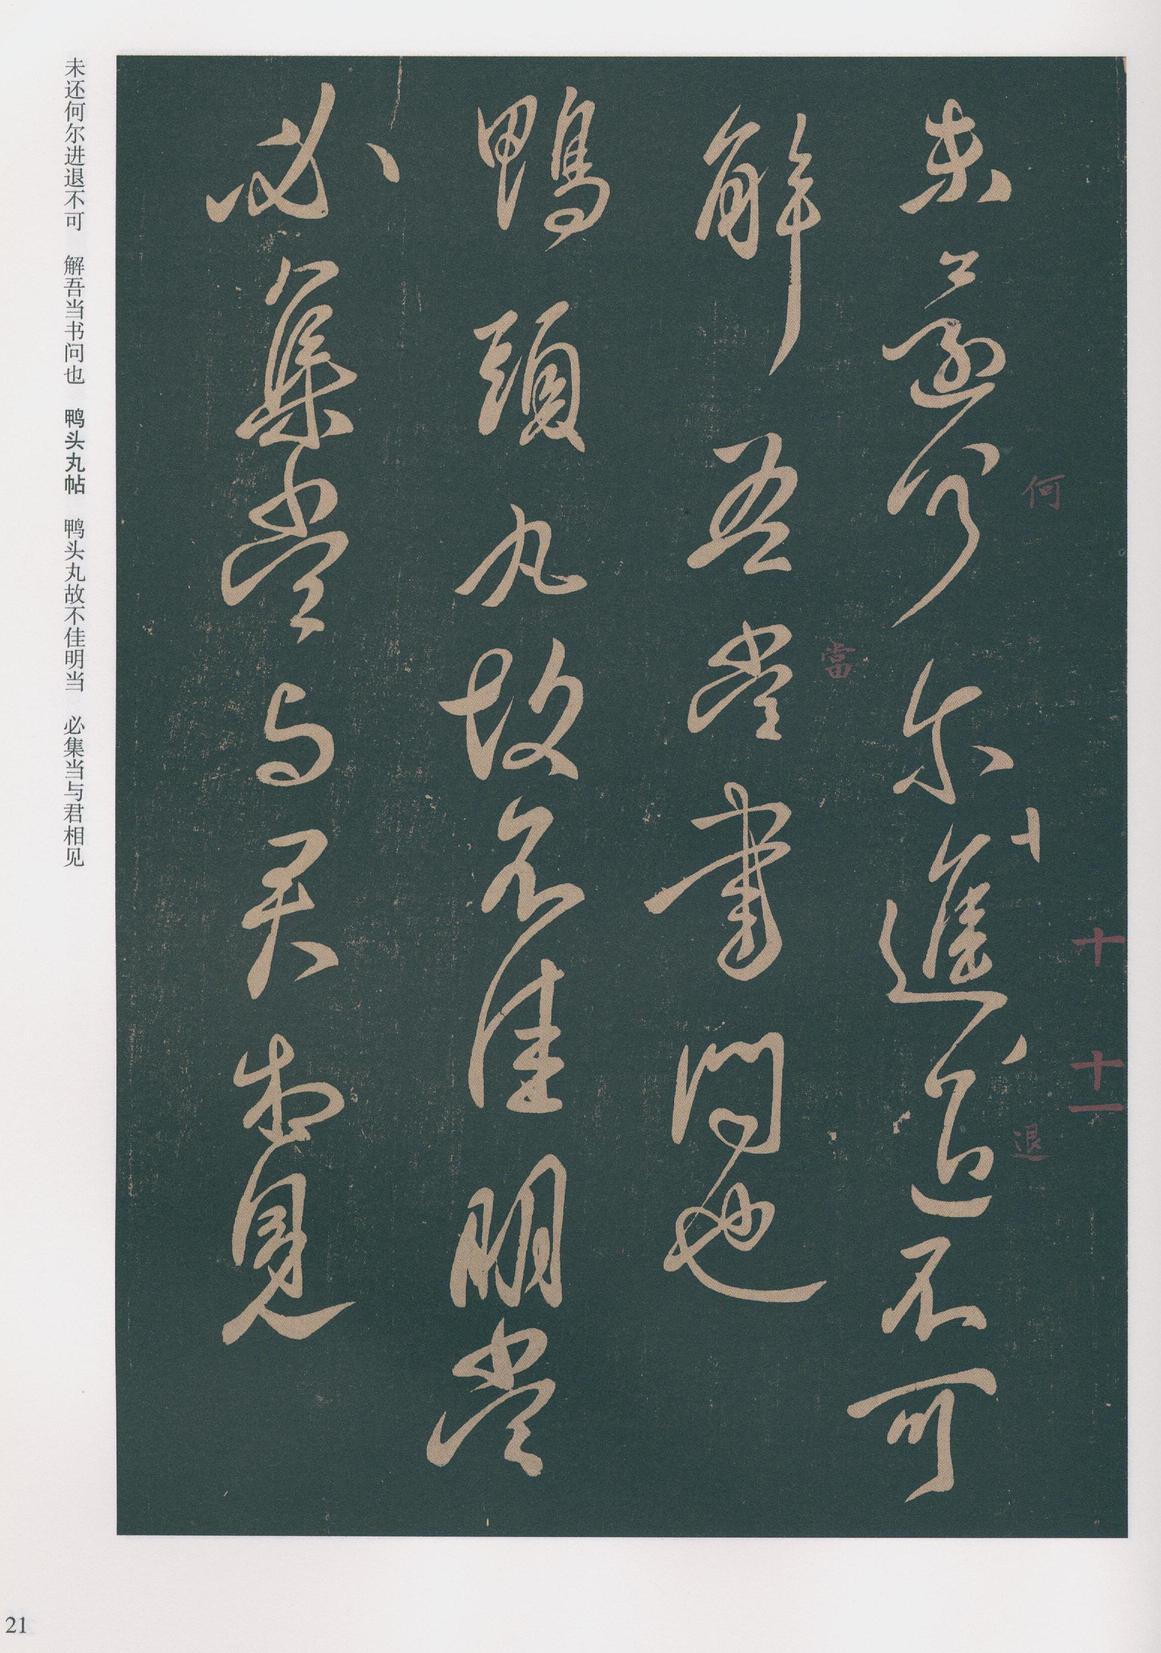 未還何爾進退不可
解吾當書問也
鴨頭丸故不佳明當
必集當与君相見
何
當
十
十一
退
未还何尔进退不可　解吾当书问也　鸭头丸帖　鸭头丸故不佳明当　必集当与君相见
21